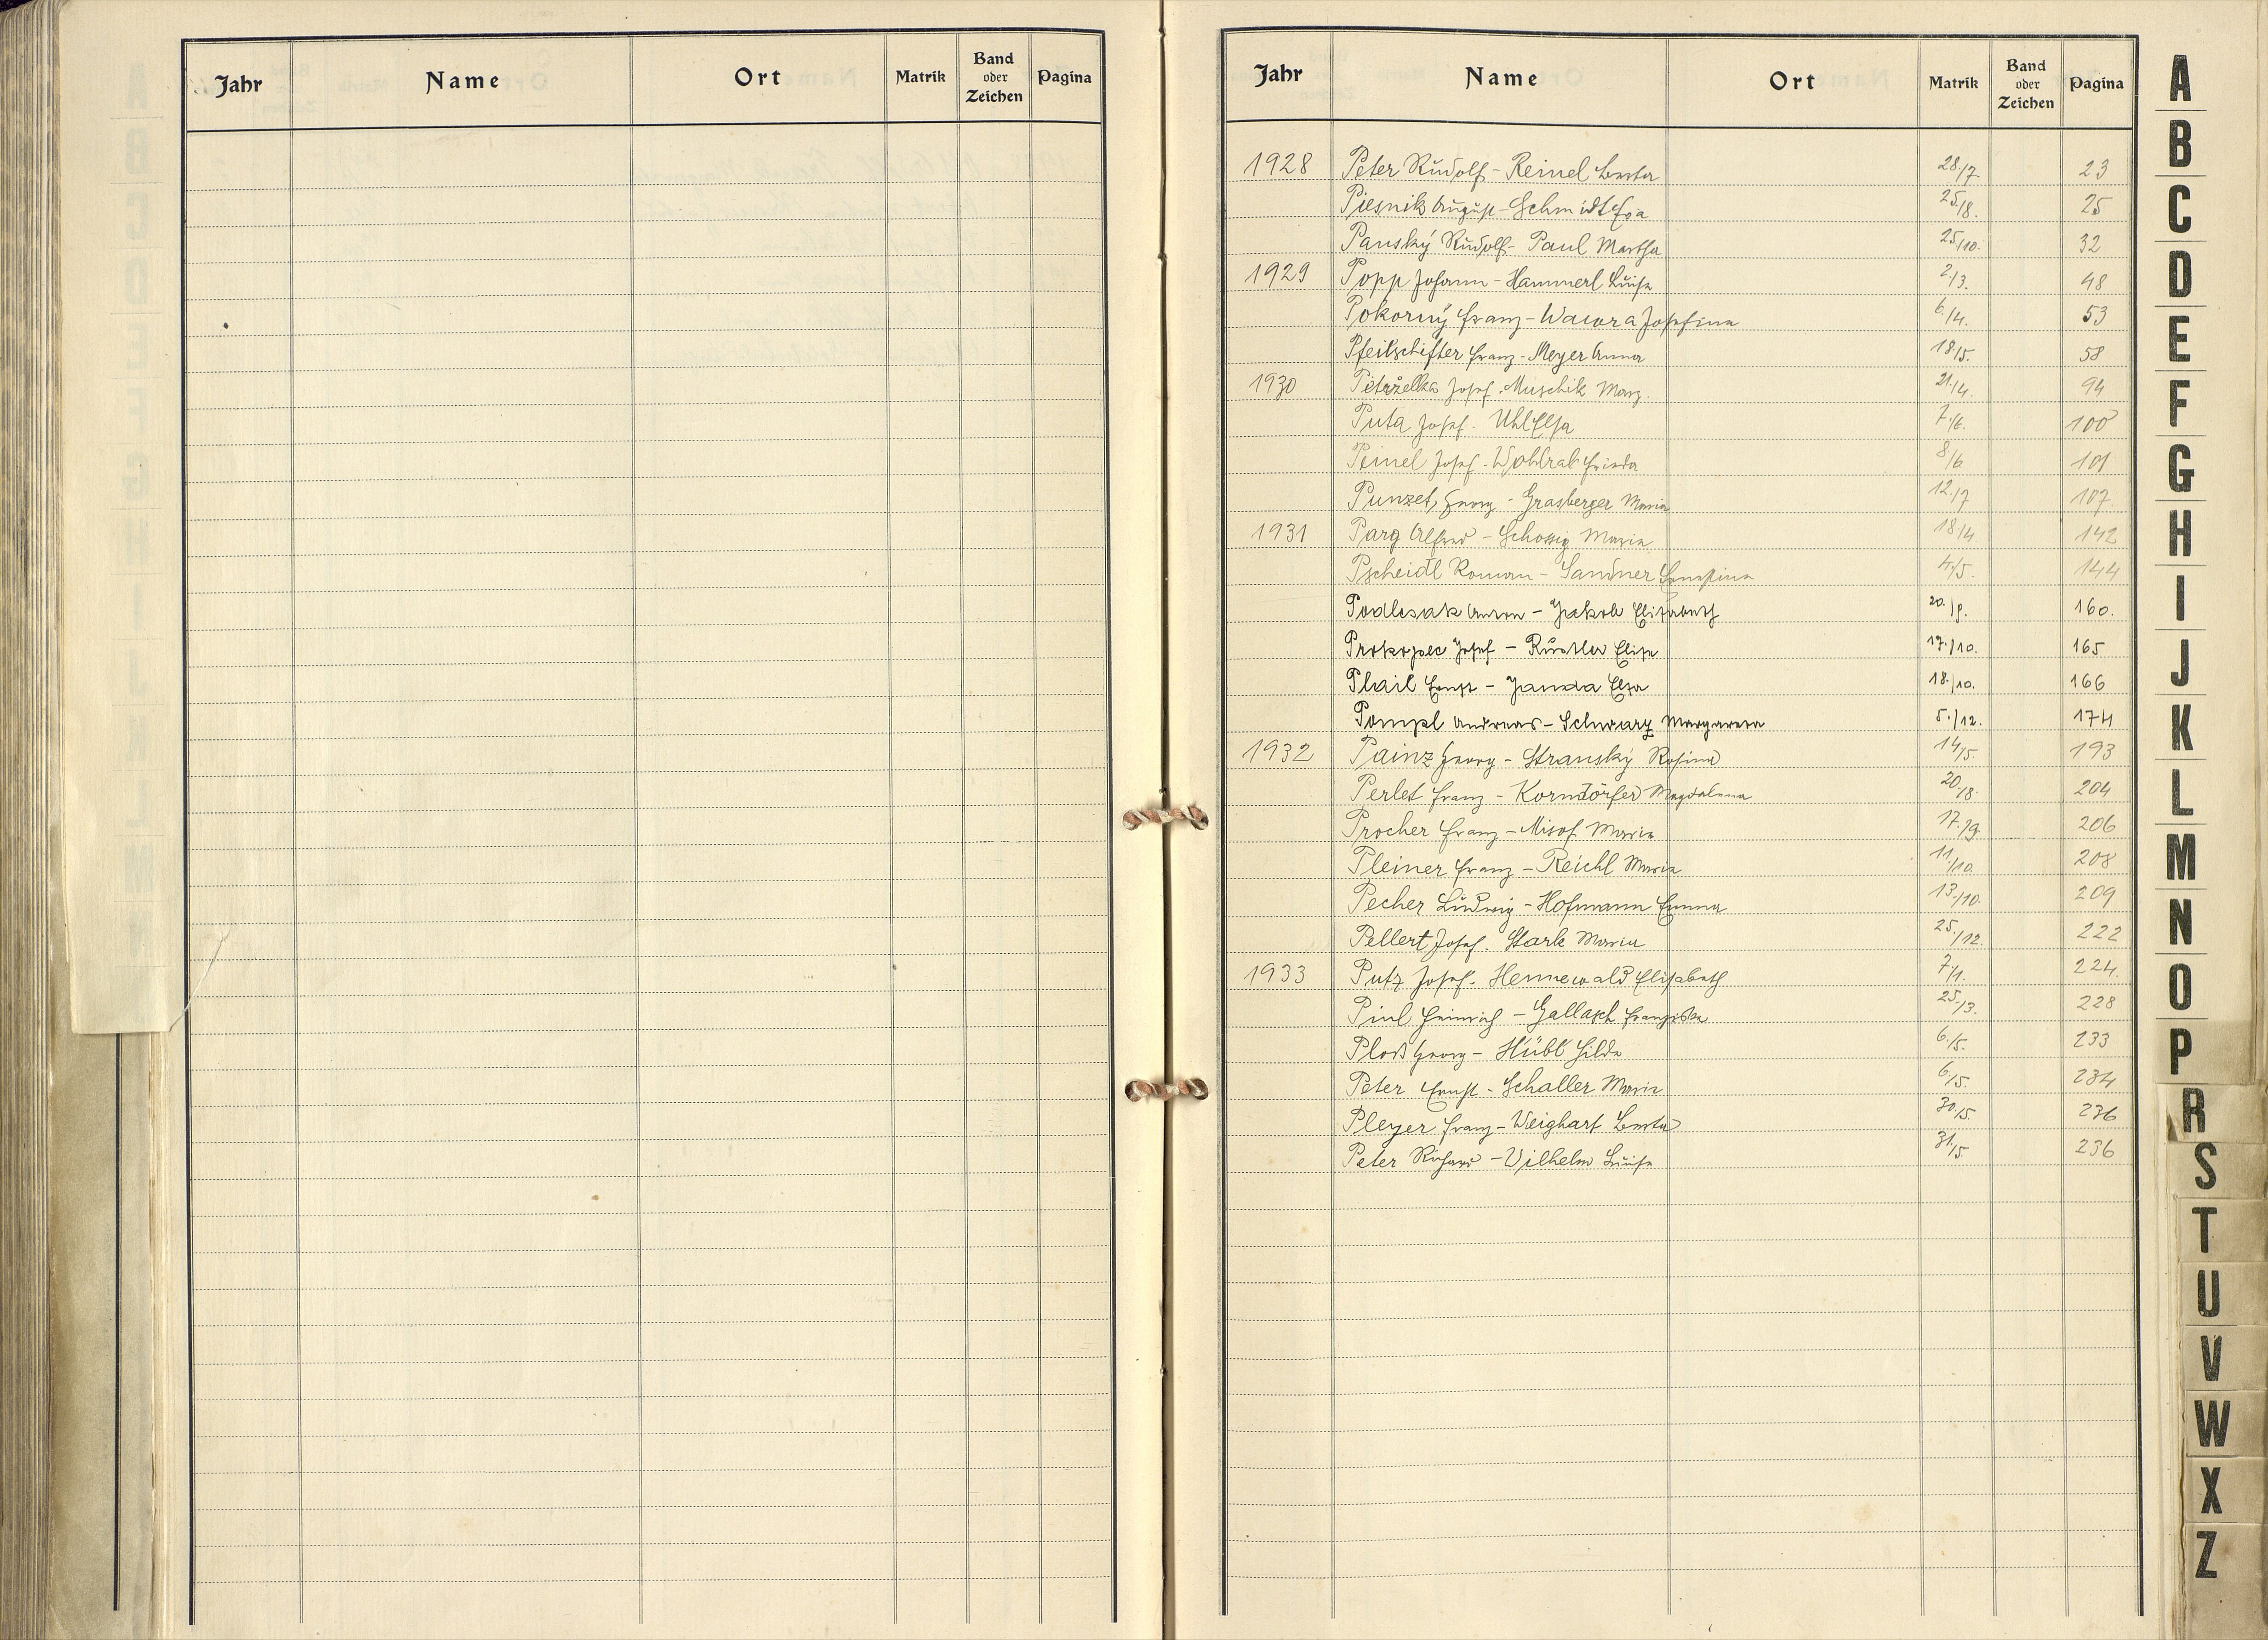 Jahr Name Ort Matrik Band oder Zeichen Pagina
Jahr Name Ort Matrik Band oder Zeichen Pagina
1928 Peter Rudolf - Reinel Berta 28/7. 23
Piesnik August - Schmidt Eva 25./8. 25
Panský Rudolf - Paul Martha 25/10. 32
1929 Popp Johann - Hammerl Luise 2./3. 48
Pokorný Franz - Wawra Josefine 6./4. 53
Pfeilschifter Franz - Meyer Anna 18/5. 58
1930 Petrželka Josef - Muschik Marg. 21./4. 94
Puta Josef - Uhl Elsa 7./6. 100
Peinel Josef - Wohlrab Frieda 8/6 101
Punzet, Georg - Grasberger Maria 12./7 107.
1931 Parg Alfred - Schossig Maria 18./4 142
Pscheidl Roman - Sandner Ernestine 4./5. 144
Podlesak Anton - Jakob Elisabeth 20./9. 160.
Prokopec Josef - Rustler Elise 17./10. 165
Plail Ernst - Janda Elsa 18./10. 166
Pompl Andreas - Schwarz Margareta 5./12. 174
1932 Painz Georg - Stranský Rosina 14/5. 193
Perlet Franz - Korndörfer Magdalena 20./8. 204
Procher Franz - Misof Maria 17./9. 206
Pleiner Franz - Reichl Maria 11./10. 208
Pecher Ludwig - Hofmann Emma 13./10. 209
Pellert Josef - Stark Maria 25./12. 222
1933 Putz Josef - Hennewald Elisabeth 7/1. 224.
Piul Heinrich - Gallasch Franziska 25./3. 228
Ploß Georg - Hübl Hilda 6./5. 233
Peter Ernst - Schaller Maria 6./5. 234
Pleyer Franz - Weighart Berta 30./5. 236
Peter Richard - Vilhelm Luise 31./5 236
A
B
C
D
E
F
G
H
I
J
K
L
M
N
O
P
R
S
T
U
V
W
X
Z